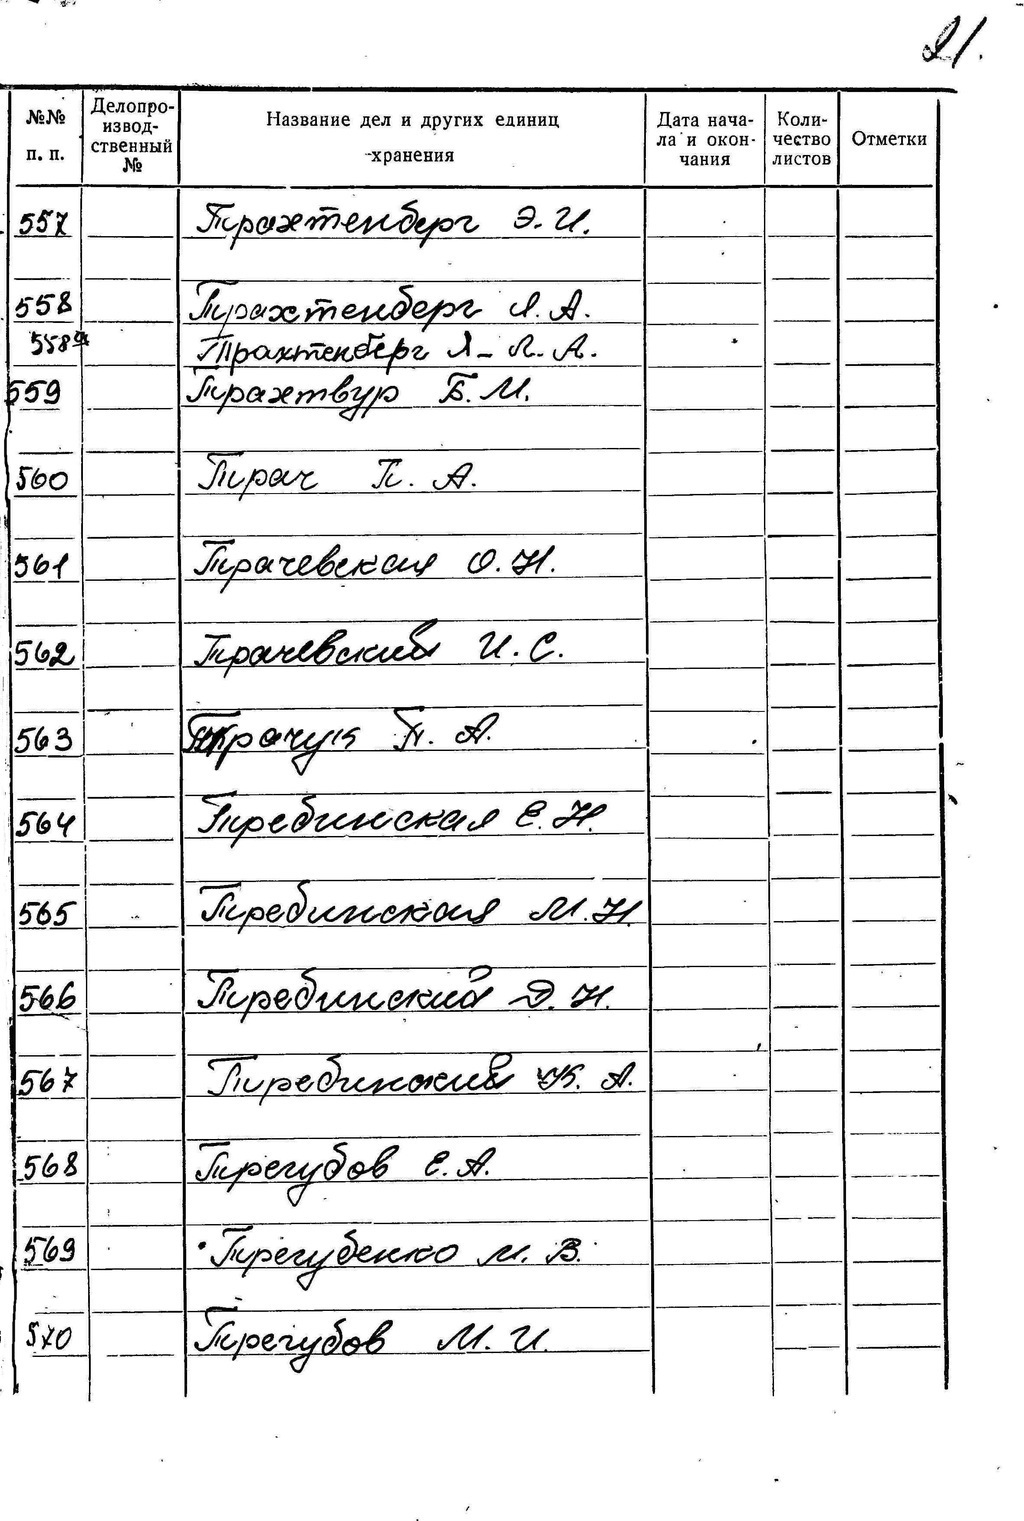 21.
№№ п. п. Делопроизводственный № Название дел и других единиц хранения Дата начала и окончания Количество листов Отметки
557 Трахтенберг Э. И.
558 Трахтенберг Л. А.
558а Трахтенберг Л-Л. А.
559 Трахтвур Б. М.
560 Трач П. А.
561 Трачевская О. Н.
562 Трачевский И. С.
563 Трачук П. А.
564 Требинская Е. Н.
565 Требинская М. Н.
566 Требинский Д. Н.
567 Требинский К. А.
568 Трегубов Е. А.
569 Трегубенко М. В.
570 Трегубов М. И.